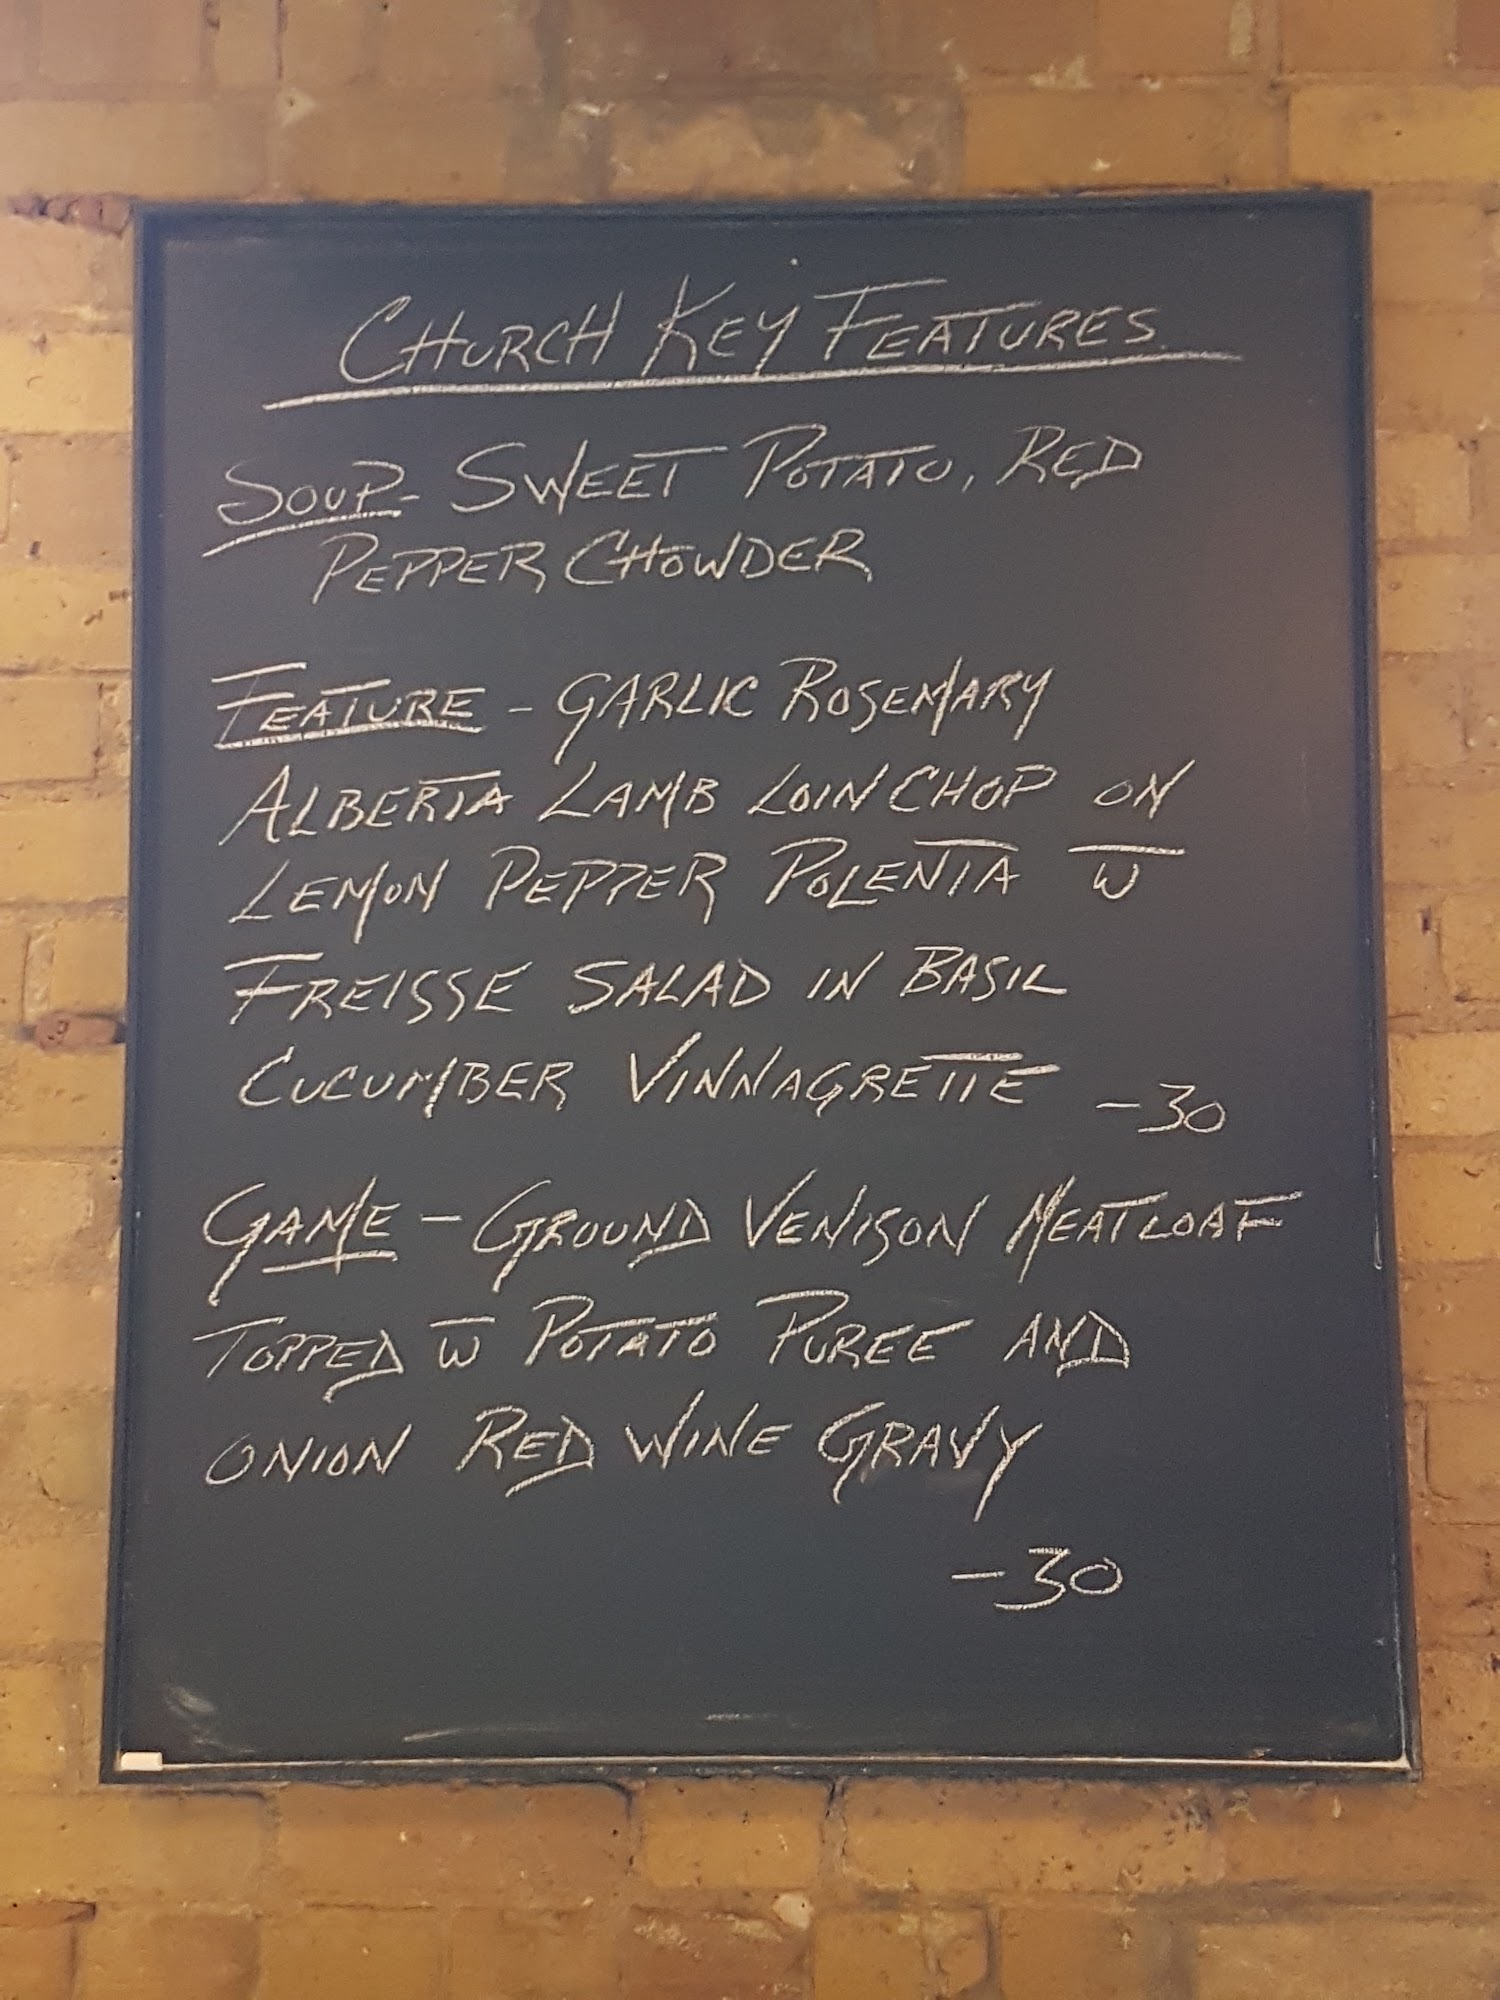 CHURCH KEY FEATURES
SOUP- SWEET POTATO, RED
PEPPER CHOWDER
FEATURE - GARLIC ROSEMARY
ALBERTA LAMB LOIN CHOP ON
LEMON PEPPER POLENTA W̅
FREISSE SALAD IN BASIL
CUCUMBER VINNAGRETTE -30
GAME - GROUND VENISON MEATLOAF
TOPPED W̅ POTATO PUREE AND
ONION RED WINE GRAVY
-30